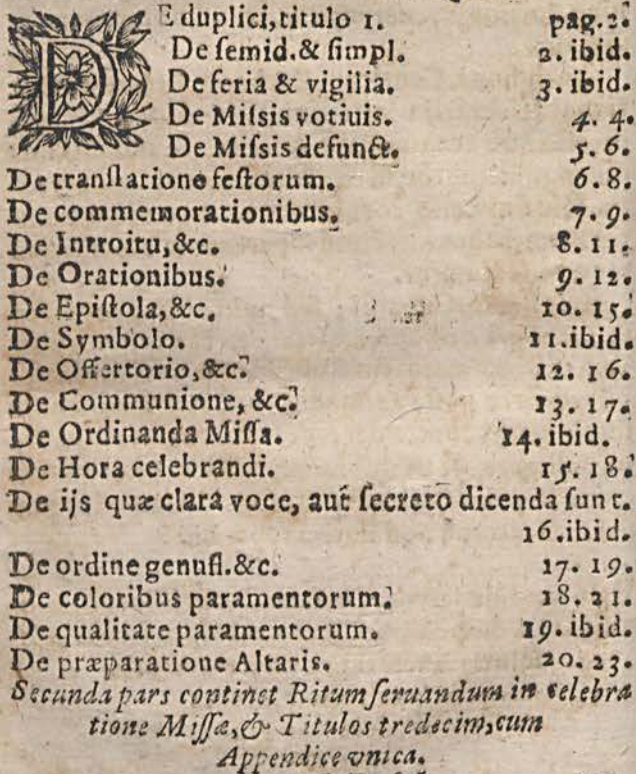 DE duplici, titulo 1. pag. 2.
De semid. & simpl. 2. ibid.
De feria & vigilia. 3. ibid.
De Missis votiuis. 4. 4.
De Missis defunct. 5. 6.
De translatione festorum. 6. 8.
De commemorationibus. 7. 9.
De Introitu, &c. 8. 11.
De Orationibus. 9. 12.
De Epistola, &c. 10. 15.
De Symbolo. 11. ibid.
De Offertorio, &c. 12. 16.
De Communione, &c. 13. 17.
De Ordinanda Missa. 14. ibid.
De Hora celebrandi. 15. 18.
De ijs quæ clara voce, aut secreto dicenda sunt.
16. ibid.
De ordine genufl. &c. 17. 19.
De coloribus paramentorum. 18. 21.
De qualitate paramentorum. 19. ibid.
De præparatione Altaris. 20. 23.
Secunda pars continet Ritum seruandum in celebra
tione Missæ, & Titulos tredecim, cum
Appendice vnica.